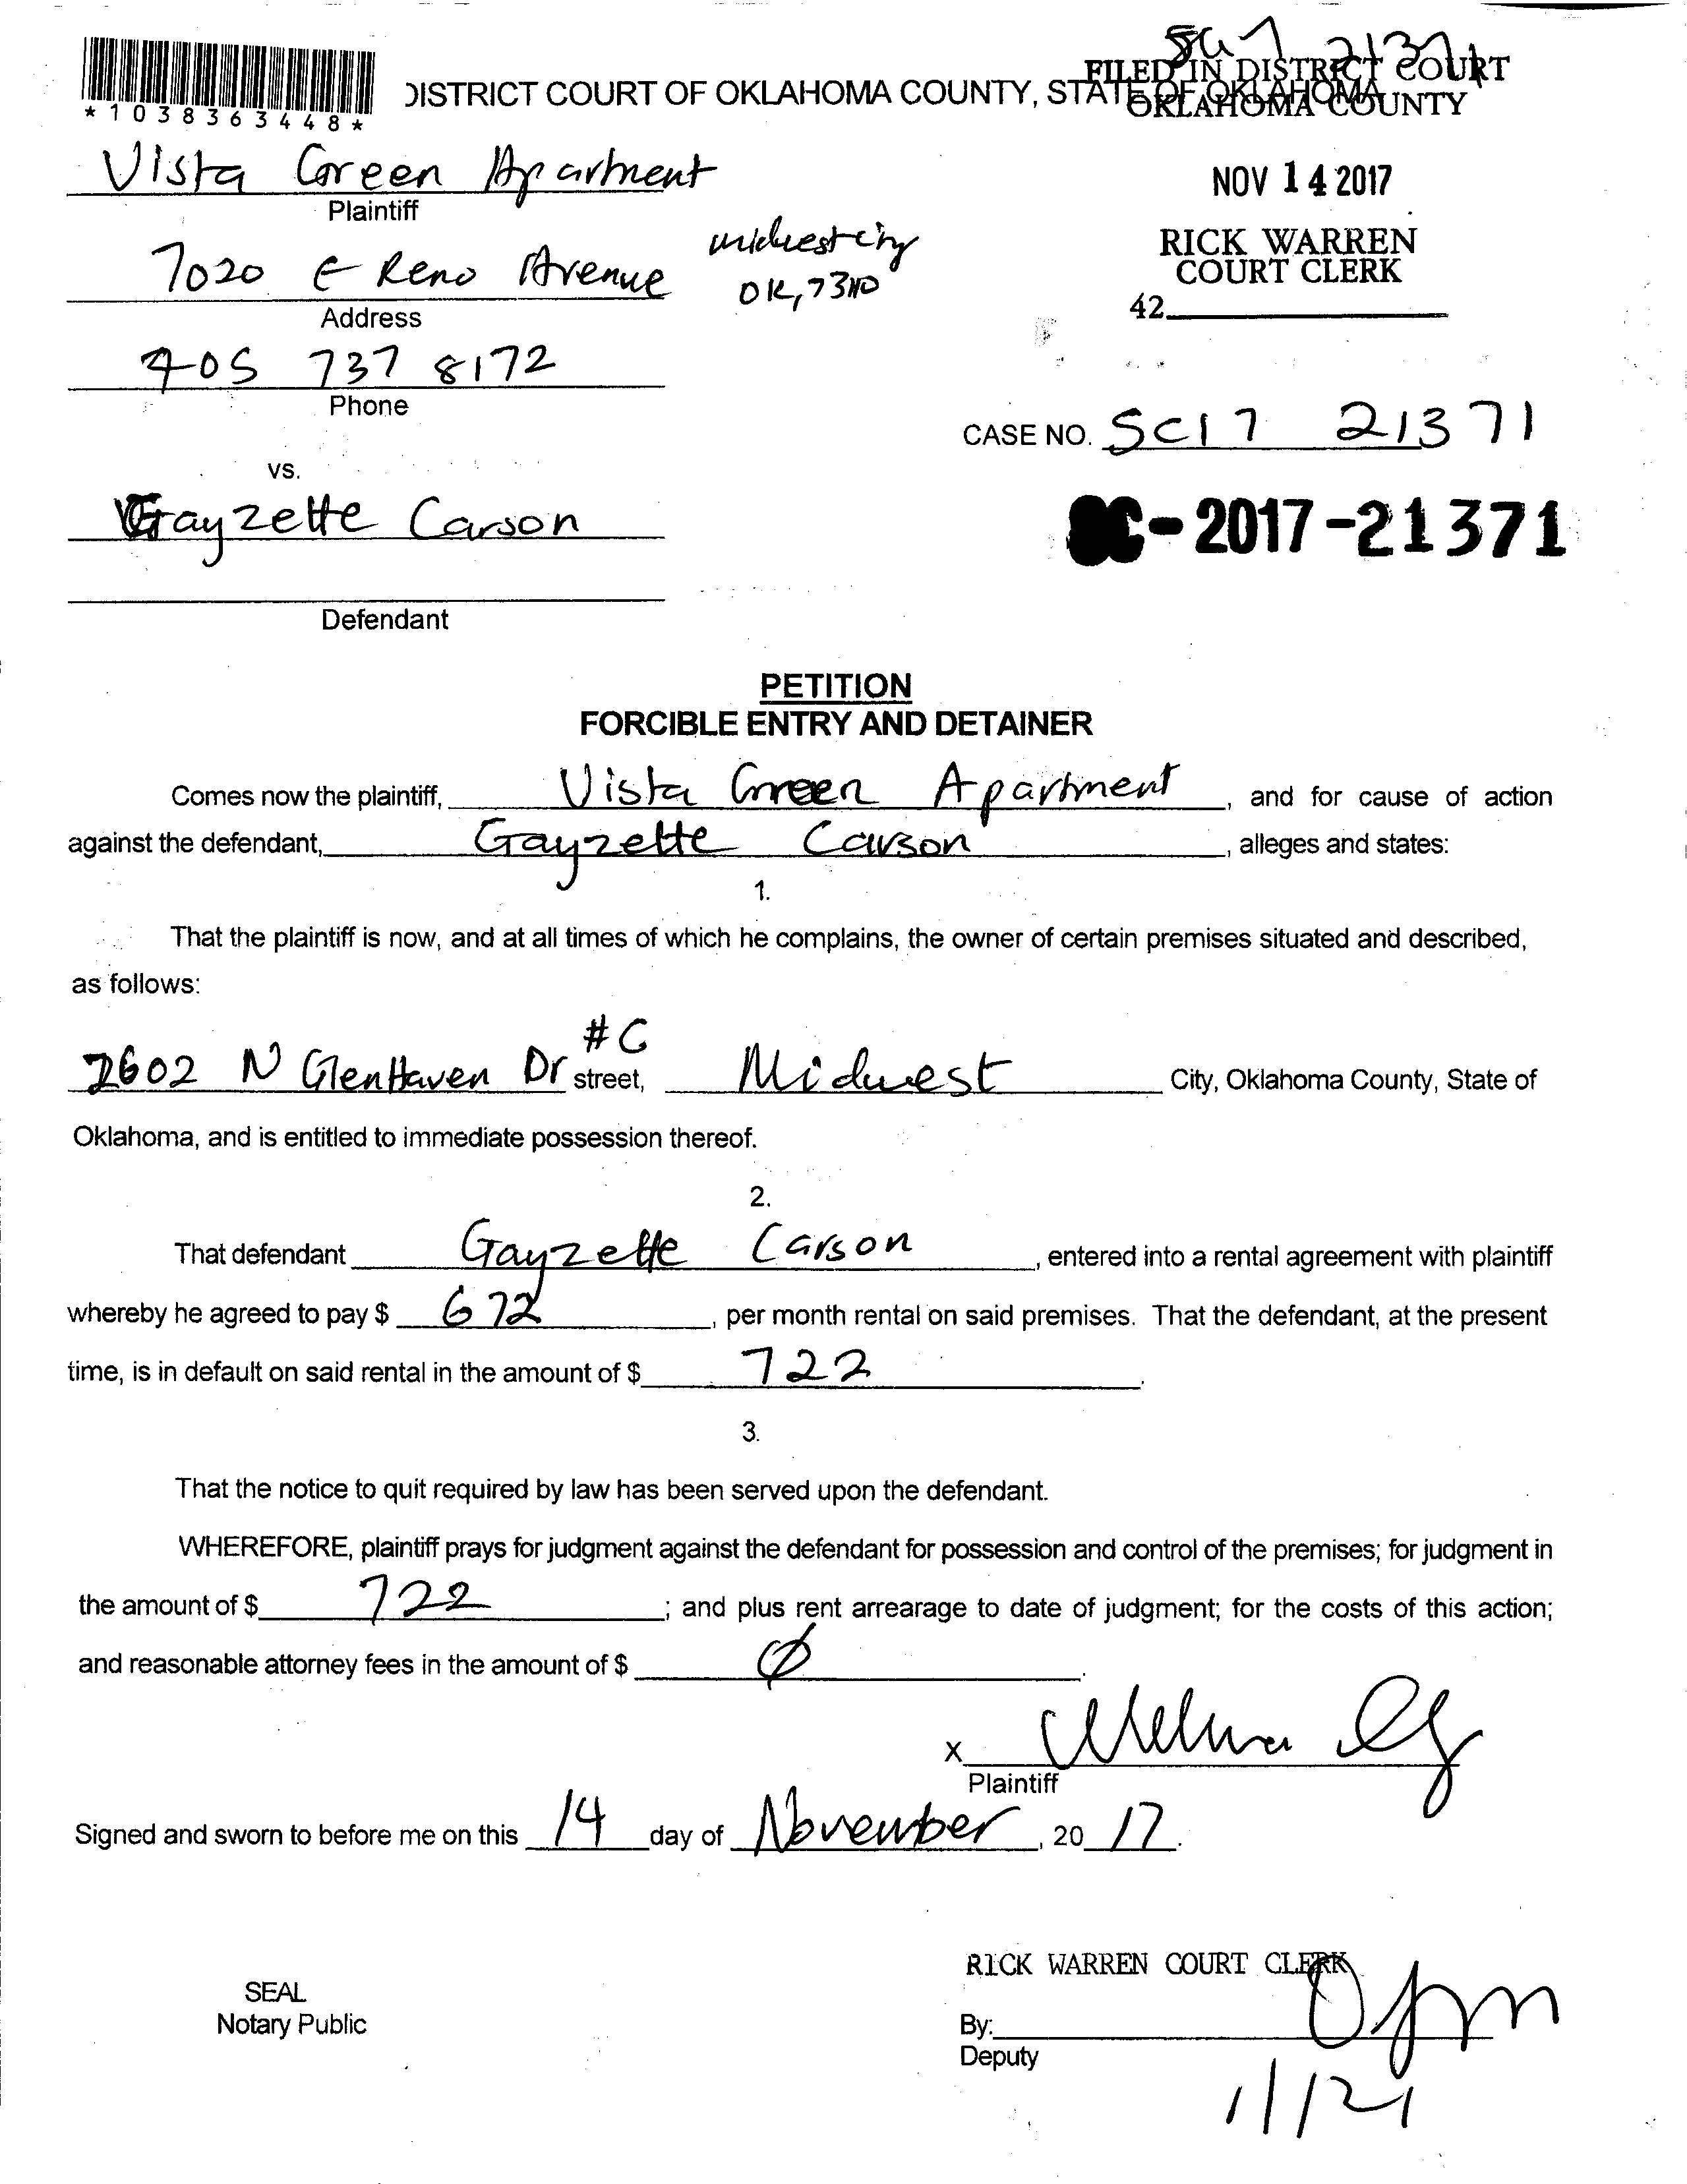 SC17 21371
*1038363448*
DISTRICT COURT OF OKLAHOMA COUNTY, STATE OF OKLAHOMA
FILED IN DISTRICT COURT
OKLAHOMA COUNTY
Vista Green Apartment
Plaintiff
NOV 14 2017
7020 E Reno Avenue
midwest city
OK, 73110
Address
RICK WARREN
COURT CLERK
42
405 737 8172
Phone
CASE NO. SC17 21371
vs.
Gayzette Carson
SC-2017-21371
Defendant
PETITION
FORCIBLE ENTRY AND DETAINER
Comes now the plaintiff, Vista Green Apartment, and for cause of action
against the defendant, Gayzette Carson, alleges and states:
1.
That the plaintiff is now, and at all times of which he complains, the owner of certain premises situated and described,
as follows:
#G
2602 N GlenHaven Dr street, Midwest City, Oklahoma County, State of
Oklahoma, and is entitled to immediate possession thereof.
2.
That defendant Gayzette Carson, entered into a rental agreement with plaintiff
whereby he agreed to pay $ 672, per month rental on said premises. That the defendant, at the present
time, is in default on said rental in the amount of $ 722.
3.
That the notice to quit required by law has been served upon the defendant.
WHEREFORE, plaintiff prays for judgment against the defendant for possession and control of the premises; for judgment in
the amount of $ 722; and plus rent arrearage to date of judgment; for the costs of this action;
and reasonable attorney fees in the amount of $ Ø.
X
Plaintiff
Signed and sworn to before me on this 14 day of November, 2017.
RICK WARREN COURT CLERK
SEAL
Notary Public
By:
Deputy
11/21